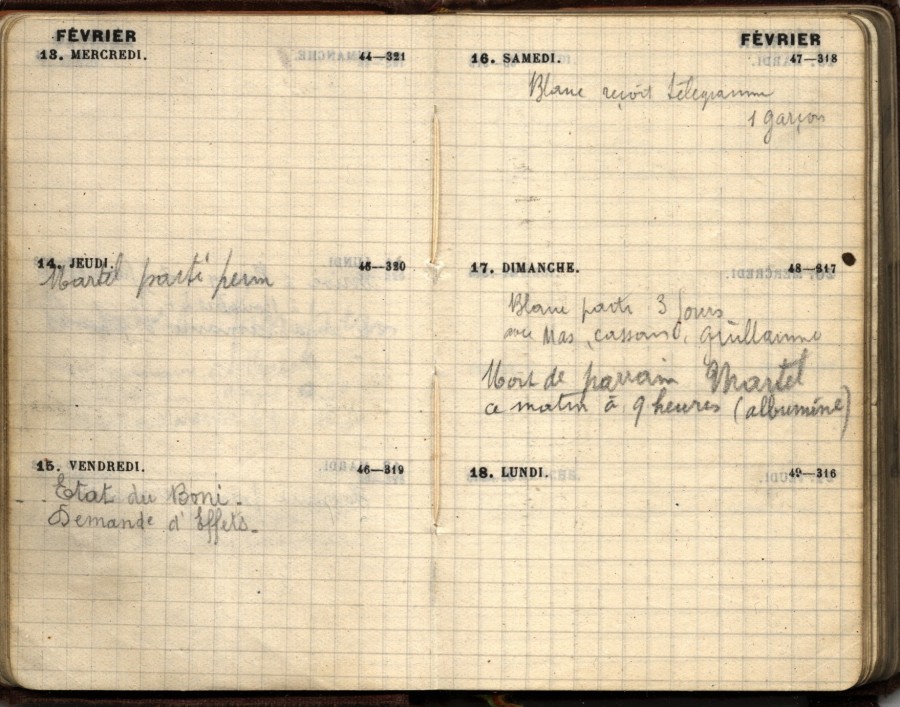 FÉVRIER
13. MERCREDI. 44—321
14. JEUDI. 45—320
Martel parti perm
15. VENDREDI. 46—319
Etat du Boni.
Demande d'Effets.
FÉVRIER
16. SAMEDI. 47—318
Blanc reçoit télegramme
1 garçon
17. DIMANCHE. 48—317
Blanc parti 3 Jours
avec Mas, cassand, Guillaume
Mort de parrain Martel
a matin à 9 heures (albumine)
18. LUNDI. 49—316